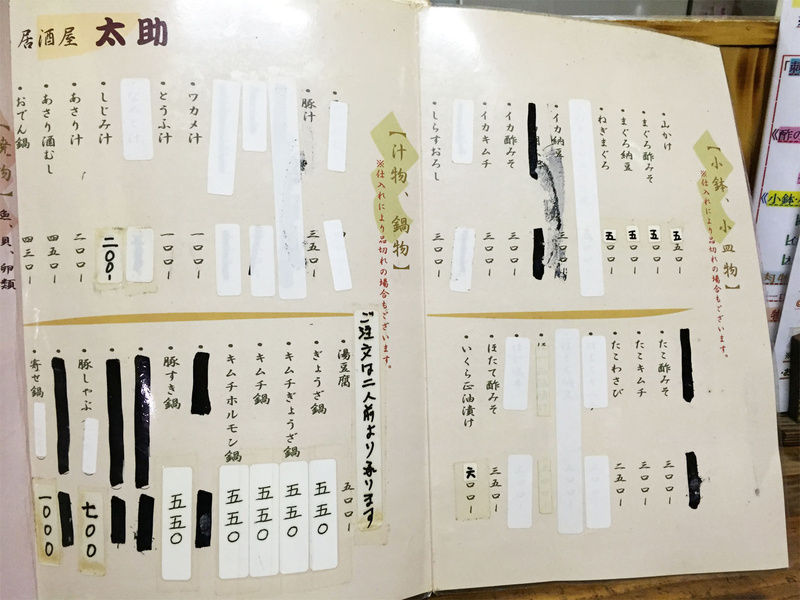 居酒屋 太助
【小鉢、小皿物】
※仕入れにより品切れの場合もございます。
・山かけ 五五〇ー
・まぐろ酢みそ 五五〇ー
・まぐろ納豆 五五〇ー
・ねぎまぐろ 五〇〇ー
・イカ納豆 三〇〇ー
・イカ酢みそ 三〇〇ー
・イカキムチ 三〇〇ー
・しらすおろし 三〇〇ー
・たこ酢みそ 三〇〇ー
・たこキムチ 三〇〇ー
・たこわさび 二五〇ー
・ほたて酢みそ 三五〇ー
・いくら正油漬け 六〇〇ー
【汁物、鍋物】
※仕入れにより品切れの場合もございます。
・豚汁 三五〇ー
・ワカメ汁 一〇〇ー
・とうふ汁 一〇〇ー
・しじみ汁 二〇〇ー
・あさり汁 二〇〇ー
・あさり酒むし 四五〇ー
・おでん鍋 四三〇ー
ご注文は二人前より承ります
・湯豆腐 五〇〇ー
・ぎょうざ鍋 五五〇
・キムチぎょうざ鍋 五五〇
・キムチ鍋 五五〇
・キムチホルモン鍋 五五〇
・豚すき鍋 五五〇
・豚しゃぶ 七〇〇
・寄せ鍋 一〇〇〇
魚、貝、卵類